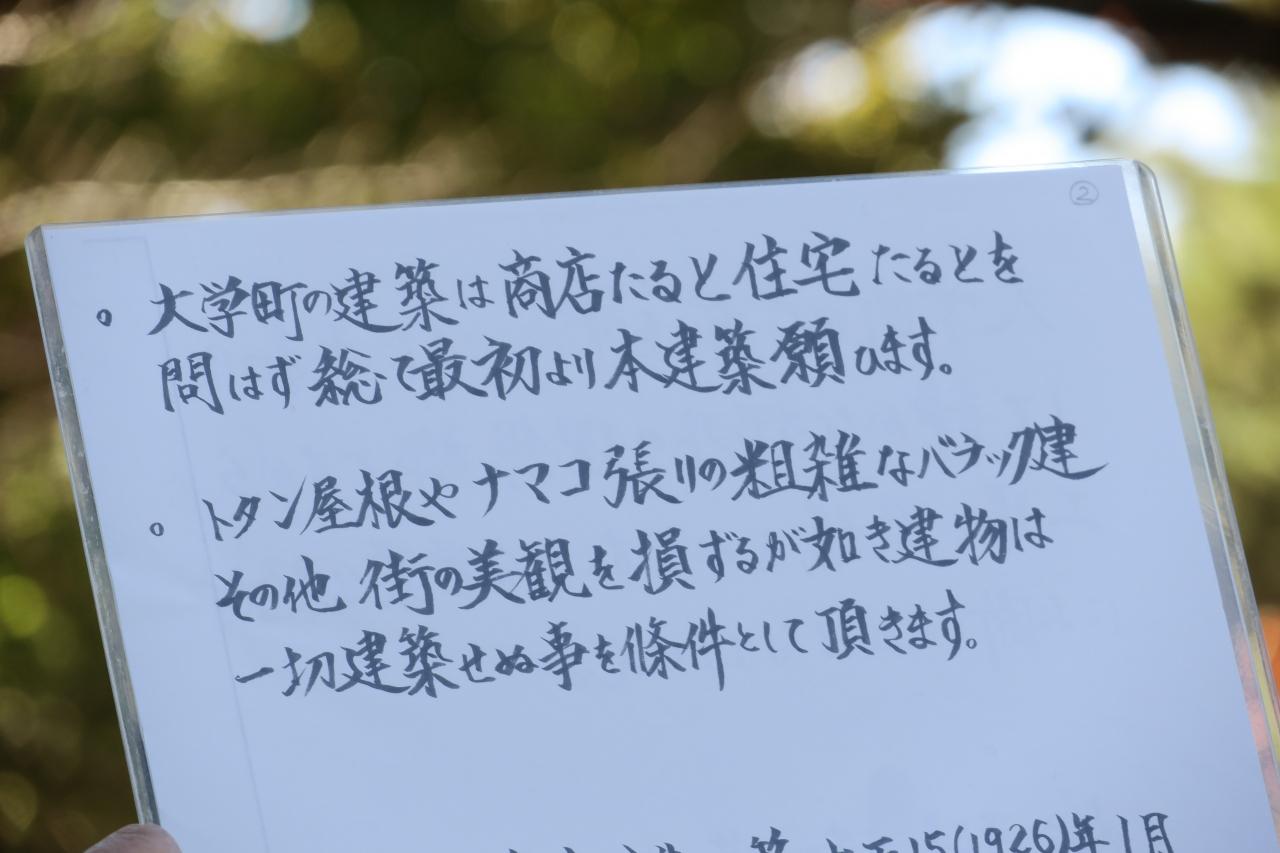 ②
。大学町の建築は商店たると住宅たるとを
問はず総て最初より本建築願ひます。
。トタン屋根やナマコ張リの粗雑なバラック建
その他 街の美観を損ずるが如き建物は
一切建築せぬ事を條件として頂きます。
15(1926)年1月